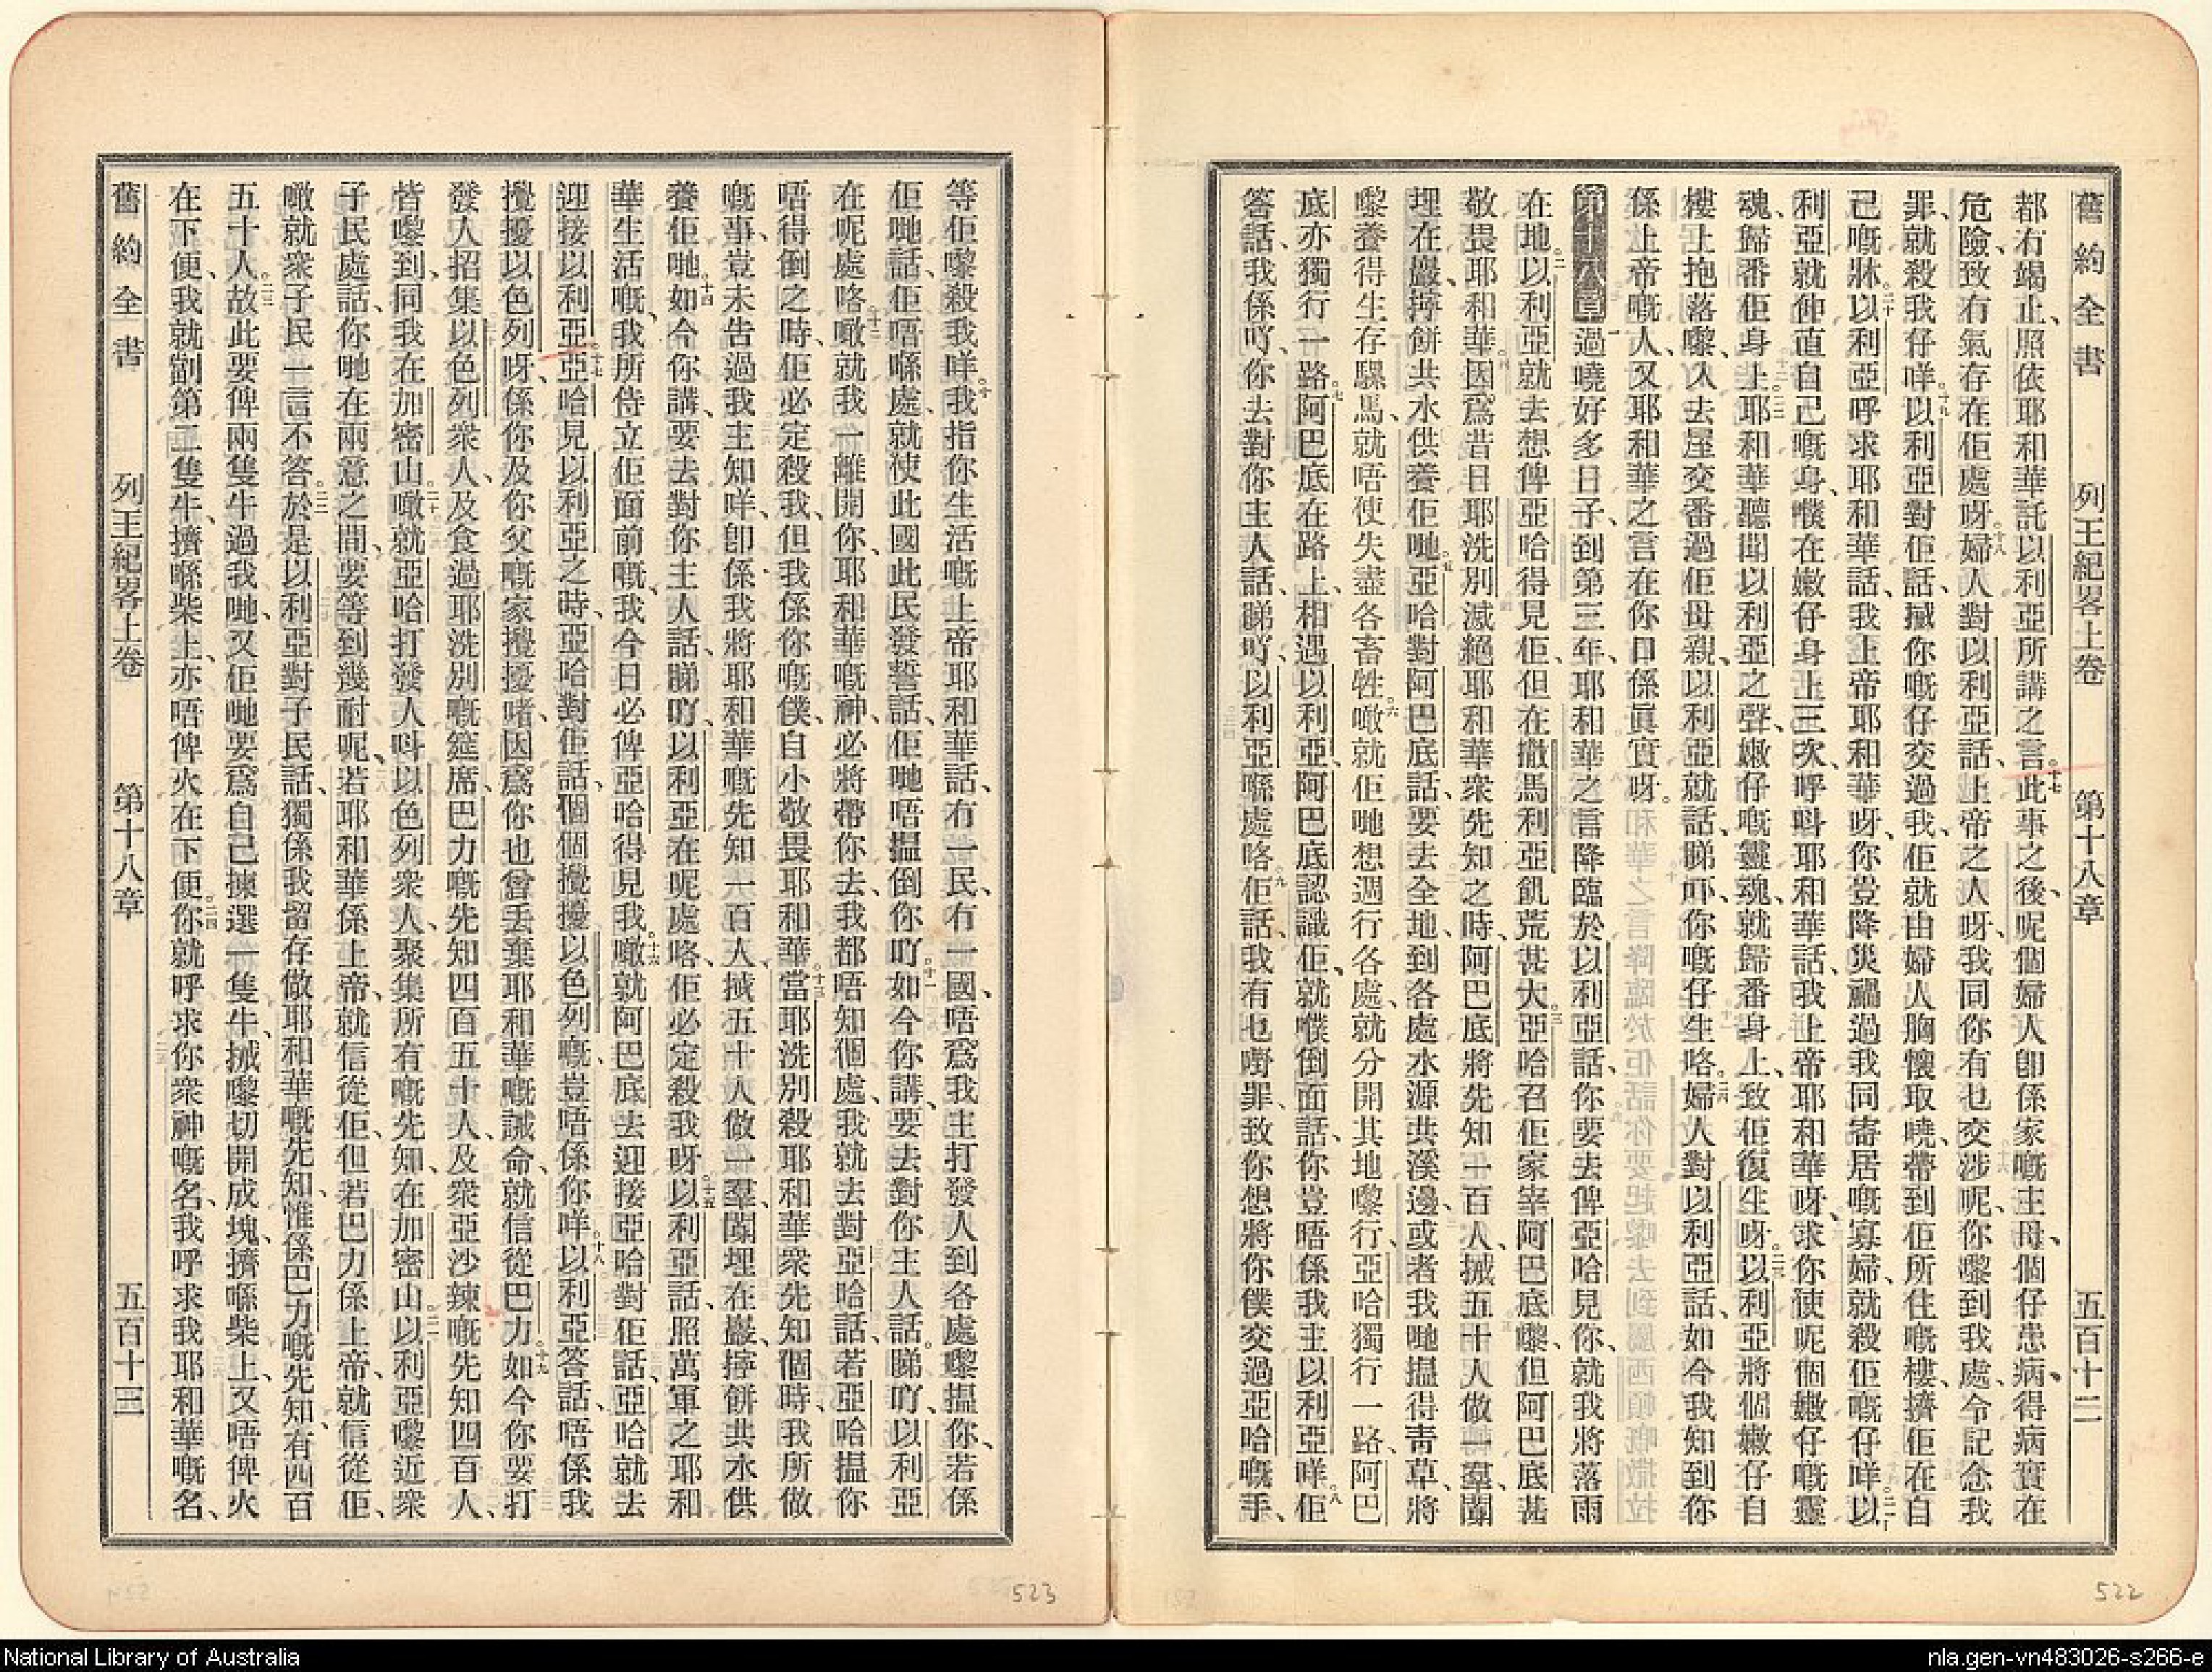 舊約全書 列王紀畧上卷 第十八章 五百十二
都冇竭止、照依耶和華託以利亞所講之言。十七此事之後、呢個婦人卽係家嘅主母、個仔患病、得病實在
危險、致冇氣存在佢處呀。十八婦人對以利亞話、上帝之人呀、我同你有乜交涉呢、你嚟到我處、令記念我
罪、就殺我仔咩。十九以利亞對佢話、摵你嘅仔交過我、佢就由婦人胸懷取曉、帶到佢所住嘅樓、擠佢在自
己嘅牀。二十以利亞呼求耶和華話、我上帝耶和華呀、你豈降災禍過我同寄居嘅寡婦、就殺佢嘅仔咩。二一以
利亞就伸直自己嘅身、㒒在嫩仔身上三次、呼呌耶和華話、我上帝耶和華呀、求你使呢個嫩仔嘅靈
魂、歸番佢身上。二二耶和華聽聞以利亞之聲、嫩仔嘅靈魂、就歸番身上、致佢復生呀。二三以利亞將個嫩仔自
樓上抱落嚟、入去屋交番過佢母親、以利亞就話、睇吓、你嘅仔生咯。二四婦人對以利亞話、如今我知到你
係上帝嘅人、又耶和華之言在你口係眞實呀。
第十八章 一過曉好多日子、到第三年、耶和華之言降臨於以利亞話、你要去俾亞哈見你、就我將落雨
在地。二以利亞就去想俾亞哈得見佢、但在撒馬利亞飢荒甚大。三亞哈召佢家宰阿巴底嚟、但阿巴底甚
敬畏耶和華。四因爲昔日耶洗別滅絕耶和華衆先知之時、阿巴底將先知一百人、摵五十人做一羣、闂
埋在巖、擰餅共水供養佢哋。五亞哈對阿巴底話、要去全地、到各處水源共溪邊、或者我哋揾得靑草、將
嚟養得生存騾馬、就唔使失盡各畜牲。六噉就佢哋想週行各處、就分開其地嚟行、亞哈獨行一路、阿巴
底亦獨行一路。七阿巴底在路上、相遇以利亞、阿巴底認識佢、就㒒倒面話、你豈唔係我主以利亞咩。八佢
答話、我係吖、你去對你主人話、睇吖、以利亞喺處咯。九佢話、我有乜嘢罪、致你想將你僕交過亞哈嘅手、
等佢嚟殺我咩。十我指你生活嘅上帝耶和華話、有一民、有一國、唔爲我主打發人到各處嚟揾你、若係
佢哋話、佢唔喺處、就使此國此民發誓話、佢哋唔揾倒你吖。十一如今你講、要去對你主人話。睇吖、以利亞
在呢處咯。十二噉就我一離開你、耶和華嘅神、必將帶你去、我都唔知個處、我就去對亞哈話、若亞哈揾你
唔得倒之時、佢必定殺我、但我係你嘅僕、自小敬畏耶和華。十三當耶洗別殺耶和華衆先知個時、我所做
嘅事、豈未吿過我主知咩、卽係我將耶和華嘅先知一百人、摵五十人做一羣、闂埋在巖、擰餅共水供
養佢哋。十四如今你講、要去對你主人話、睇吖、以利亞在呢處咯、佢必定殺我呀。十五以利亞話、照萬軍之耶和
華生活嘅、我所侍立佢面前嘅、我今日必俾亞哈得見我。十六噉就阿巴底去迎接亞哈對佢話、亞哈就去
迎接以利亞。十七亞哈見以利亞之時、亞哈對佢話、個個攪擾以色列嘅、豈唔係你咩。十八以利亞答話、唔係我
攪擾以色列呀、係你及你父嘅家攪擾啫、因爲你也曾丢棄耶和華嘅誡命、就信從巴力。十九如今你要打
發人招集以色列衆人、及食過耶洗別嘅筵席、巴力嘅先知四百五十人、及衆亞沙辣嘅先知四百人、
皆嚟到、同我在加密山。二十噉就亞哈打發人呌以色列衆人、聚集所有嘅先知、在加密山。二一以利亞嚟近衆
子民處話、你哋在兩意之間、要等到幾耐呢、若耶和華係上帝、就信從佢、但若巴力係上帝、就信從佢、
噉就衆子民一言不答。二二於是以利亞對子民話、獨係我留存做耶和華嘅先知、惟係巴力嘅先知、有四百
五十人。二三故此要俾兩隻牛過我哋、又佢哋要爲自己揀選一隻牛、摵嚟切開成塊、擠喺柴上、又唔俾火
在下便、我就劏第二隻牛、擠喺柴上、亦唔俾火在下便。二四你就呼求你衆神嘅名、我呼求我耶和華嘅名、
舊約全書 列王紀畧上卷 第十八章 五百十三
522
523
National Library of Australia
nla.gen-vn483026-s266-e